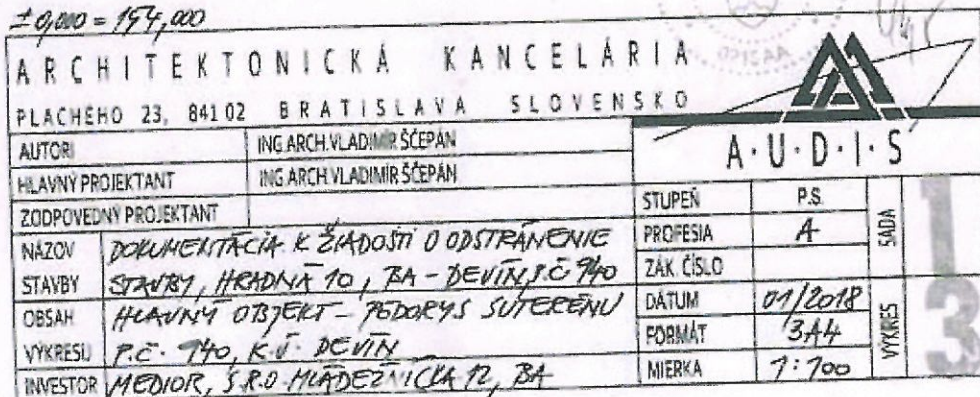 ±0,000 = 154,000
ARCHITEKTONICKÁ KANCELÁRIA
PLACHÉHO 23, 841 02 BRATISLAVA SLOVENSKO
A·U·D·I·S
AUTORI ING.ARCH.VLADIMÍR ŠČEPÁN
HLAVNÝ PROJEKTANT ING.ARCH.VLADIMÍR ŠČEPÁN
ZODPOVEDNÝ PROJEKTANT
NÁZOV STAVBY
DOKUMENTÁCIA K ŽIADOSTI O ODSTRÁNENIE
STAVBY, HRADNÁ 10, BA - DEVÍN, P.Č 940
OBSAH VÝKRESU
HLAVNÝ OBJEKT - PÔDORYS SUTERÉNU
P.Č. 940, K.Ú. DEVÍN
INVESTOR MEDIOR, S.R.O. MLÁDEŽNÍCKA 12, BA
STUPEŇ P.S.
PROFESIA A
ZÁK. ČÍSLO
DÁTUM 01/2018
FORMÁT 3A4
MIERKA 1:100
SADA 1
VÝKRES 3